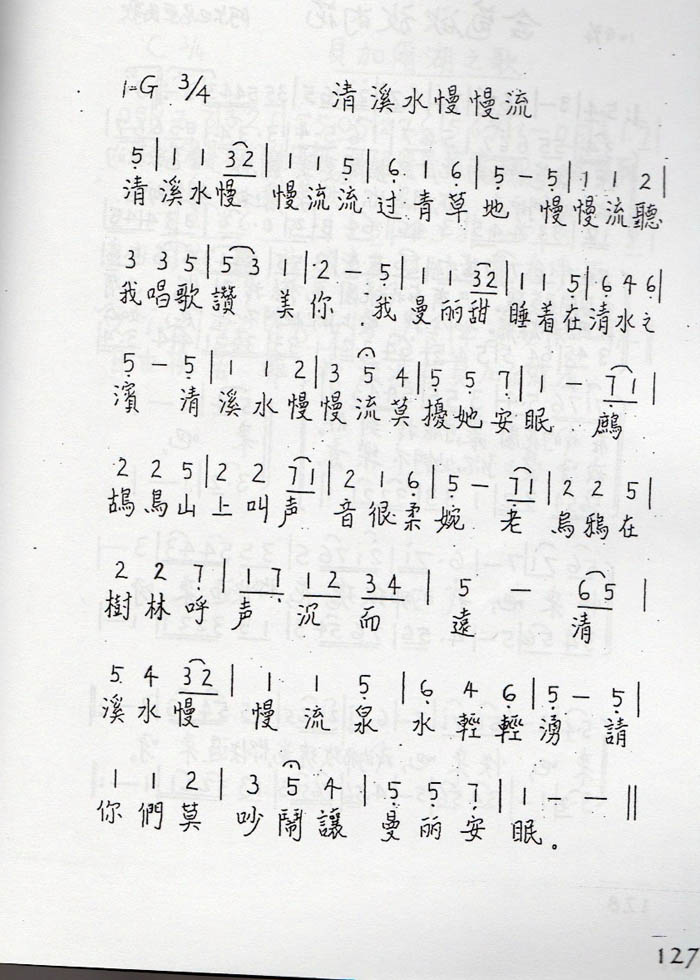 1=G 3/4 清溪水慢慢流
5̣ | 1 1 3 2 | 1 1 5̣ | 6̣ 1 6̣ | 5̣ — 5̣ | 1 1 2 |
清溪水慢 慢流流过青草地 慢慢流聽
3 3 5 | 5 3 1 | 2 — 5̣ | 1 1 3 2 | 1 1 5̣ | 6̣ 4 6̣ |
我唱歌讚 美你.我曼丽甜睡着在清水之
5̣ — 5̣ | 1 1 2 | 3 5̣ 4 | 5̣ 5̣ 7̣ | 1 — 7̣ 1 |
濱 清溪水慢慢流莫擾她安眠 鷓
2 2 5 | 2 2 7̣ 1 | 2 1 6̣ | 5̣ — 7̣ 1 | 2 2 5 |
鴣鳥山上叫声 音很柔婉 老烏鴉在
2 2 7̣ | 1 7̣ 1 2 3 4 | 5 — 6 5 |
樹林呼声沉而遠 清
5 4 3 2 | 1 1 5̣ | 6̣ 4 6̣ | 5̣ — 5̣ |
溪水慢 慢流泉水輕輕湧 請
1 1 2 | 3 5̣ 4 | 5̣ 5̣ 7̣ | 1 — — ‖
你們莫吵鬧讓曼丽安眠。
127